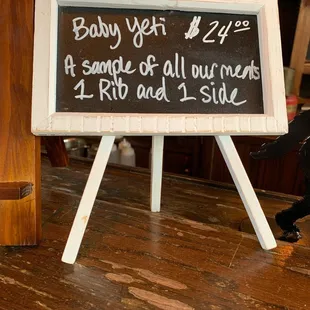 Baby Yeti $24⁰⁰
A sample of all our meats
1 Rib and 1 side